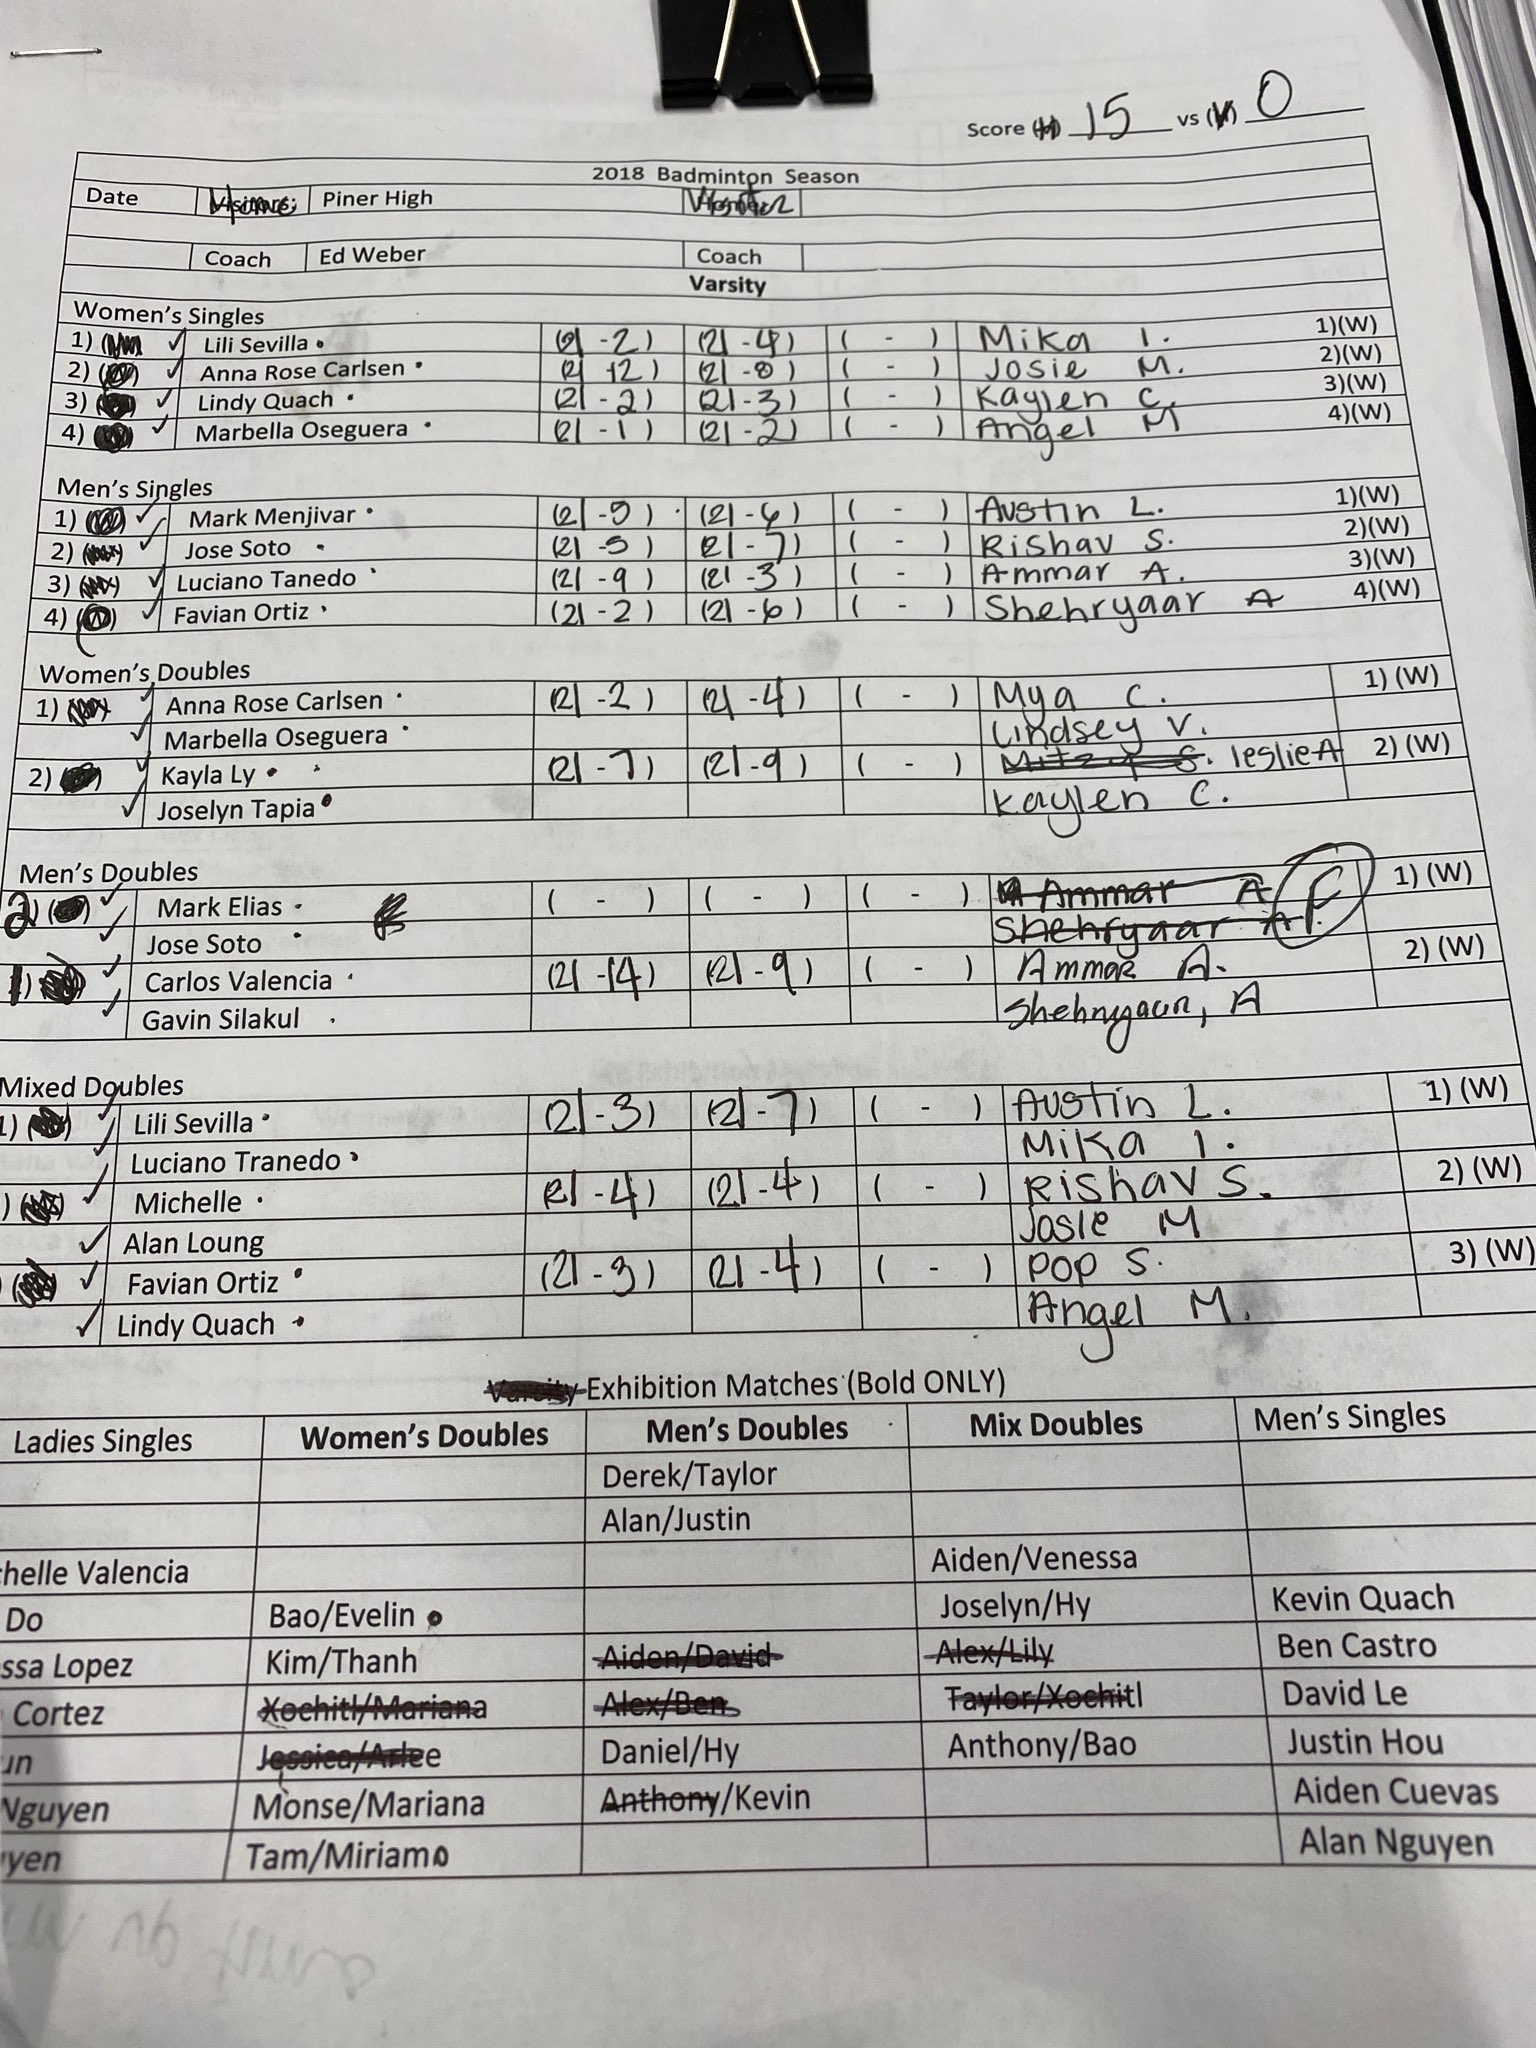 Score (H) 15 vs (V) 0
2018 Badminton Season
Date Home Piner High Visitor
Coach Ed Weber Coach
Varsity
Women's Singles
1) Lili Sevilla (21 - 2) (21 - 4) ( - ) Mika I. 1)(W)
2) Anna Rose Carlsen (21 - 12) (21 - 8) ( - ) Josie M. 2)(W)
3) Lindy Quach (21 - 2) (21 - 3) ( - ) Kaylen C. 3)(W)
4) Marbella Oseguera (21 - 1) (21 - 2) ( - ) Angel M 4)(W)
Men's Singles
1) Mark Menjivar (21 - 5) (21 - 6) ( - ) Austin L. 1)(W)
2) Jose Soto (21 - 5) (21 - 7) ( - ) Rishav S. 2)(W)
3) Luciano Tanedo (21 - 9) (21 - 3) ( - ) Ammar A. 3)(W)
4) (W) Favian Ortiz (21 - 2) (21 - 6) ( - ) Shehryaar A 4)(W)
Women's Doubles
1) Anna Rose Carlsen (21 - 2) (21 - 4) ( - ) Mya C. 1) (W)
Marbella Oseguera Lindsey V.
2) Kayla Ly (21 - 7) (21 - 9) ( - ) Mitzy S. leslie A 2) (W)
Joselyn Tapia Kaylen C.
Men's Doubles
2) Mark Elias ( - ) ( - ) ( - ) Ammar A F 1) (W)
Jose Soto Shehryaar A
1) Carlos Valencia (21 - 14) (21 - 9) ( - ) Ammar A. 2) (W)
Gavin Silakul Shehryaar, A
Mixed Doubles
1) Lili Sevilla (21 - 3) (21 - 7) ( - ) Austin L. 1) (W)
Luciano Tranedo Mika I.
) Michelle (21 - 4) (21 - 4) ( - ) Rishav S. 2) (W)
Alan Loung Josie M
) Favian Ortiz (21 - 3) (21 - 4) ( - ) Pop S. 3) (W)
Lindy Quach Angel M.
Varsity Exhibition Matches (Bold ONLY)
Ladies Singles Women's Doubles Men's Doubles Mix Doubles Men's Singles
Derek/Taylor
Alan/Justin
chelle Valencia Aiden/Venessa
Do Bao/Evelin Joselyn/Hy Kevin Quach
ssa Lopez Kim/Thanh Aiden/David Alex/Lily Ben Castro
Cortez Xochitl/Mariana Alex/Ben Taylor/Xochitl David Le
un Jessica/Arlee Daniel/Hy Anthony/Bao Justin Hou
Nguyen Monse/Mariana Anthony/Kevin Aiden Cuevas
yen Tam/Miriam Alan Nguyen